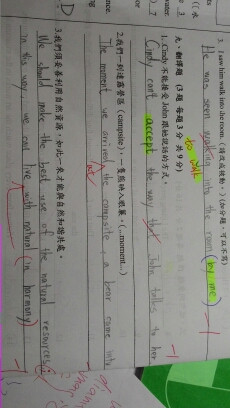 3. I saw him walk into the room. (請改成被動。) (加分題，可以不寫)
He was seen walking into the room (by me)
to walk
-1
九、翻譯題 (3題 每題3分 共9分)
1. Cindy 不能接受 John 跟她說話的方式。
Cindy can't accept the way that John talks to her
-1
2. 我們一到達露營區 (campsite)，一隻熊映入眼簾。(...moment...)
The moment we arrives the campsite, a bear came into
at
3. 我們須妥善利用自然資源，如此一來才能與自然和諧共處。
We should make the best use of the natural resources
in this way, we can live with natural (in harmony)